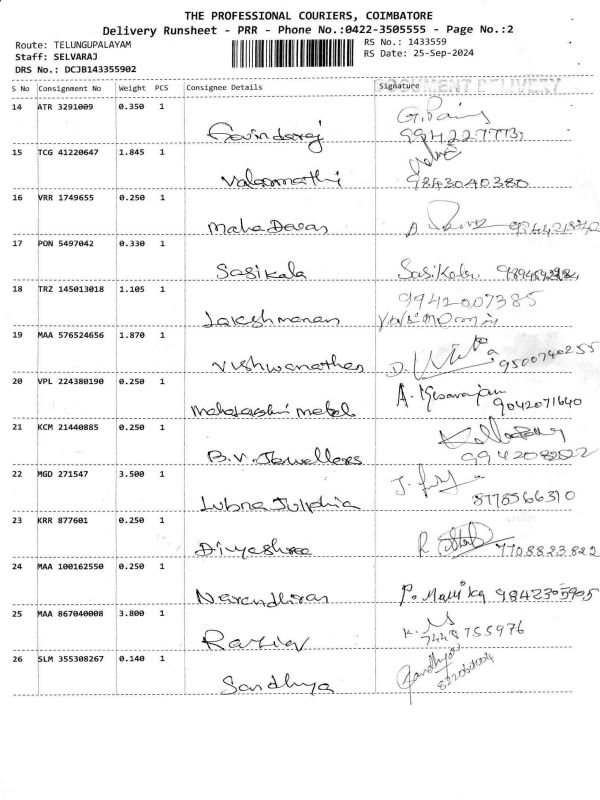 THE PROFESSIONAL COURIERS, COIMBATORE
Delivery Runsheet - PRR - Phone No.:0422-3505555 - Page No.:2
Route: TELUNGUPALAYAM
RS No.: 1433559
Staff: SELVARAJ
RS Date: 25-Sep-2024
DRS No.: DCJB143355902
S No Consignment No Weight PCS Consignee Details Signature
DOCUMENT DELIVERY
14 ATR 3291009 0.350 1
Govindaraj G.
15 TCG 41220647 1.845 1
Valarmathi 9843040380
16 VRR 1749655 0.250 1
Maha Devan
17 PON 5497042 0.330 1
Sasikala Sasikala
18 TRZ 145013018 1.105 1
9942007385
Lakshmanan
19 MAA 576524656 1.870 1
Vishwanathan D. 9500740255
20 VPL 224380190 0.250 1
Mahalakshmi metal A. 9042071640
21 KCM 21440885 0.250 1
B.V. Jewellers
22 MGD 271547 3.500 1
Lubna Julphia J. 8778566310
23 KRR 877601 0.250 1
Divyashree R 7708823822
24 MAA 100162550 0.250 1
Narendhiran P. Mallika 9842305905
25 MAA 867040008 3.800 1
K.
26 SLM 355308267 0.140 1
Sandhya Sandhya